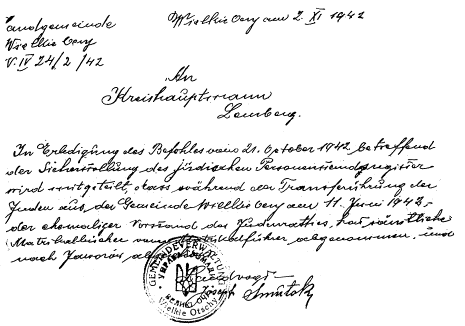 Landgemeinde
Wielkie Oczy
V. IV 24/2/42
Wielkie Oczy am 2. XI 1942
An
Kreishauptmann
Lemberg.
In Erledigung des Befehles vom 21. October 1942, betreffend
der Sicherstellung des jüdischen Personenstandsregister
wird mitgeteilt, dass während der Transferührung der
Juden aus der Gemeinde Wielkie Oczy am 11. Juni 1942,-
der ehemaliger Vorstand des Judenrathes, hat sämtliche
Matrikelbücher vom Matrikelführer abgenommen, und
nach Jaworów
Landvogt
Joseph
GEMEINDEVERWALTUNG
Wielkie Otschy